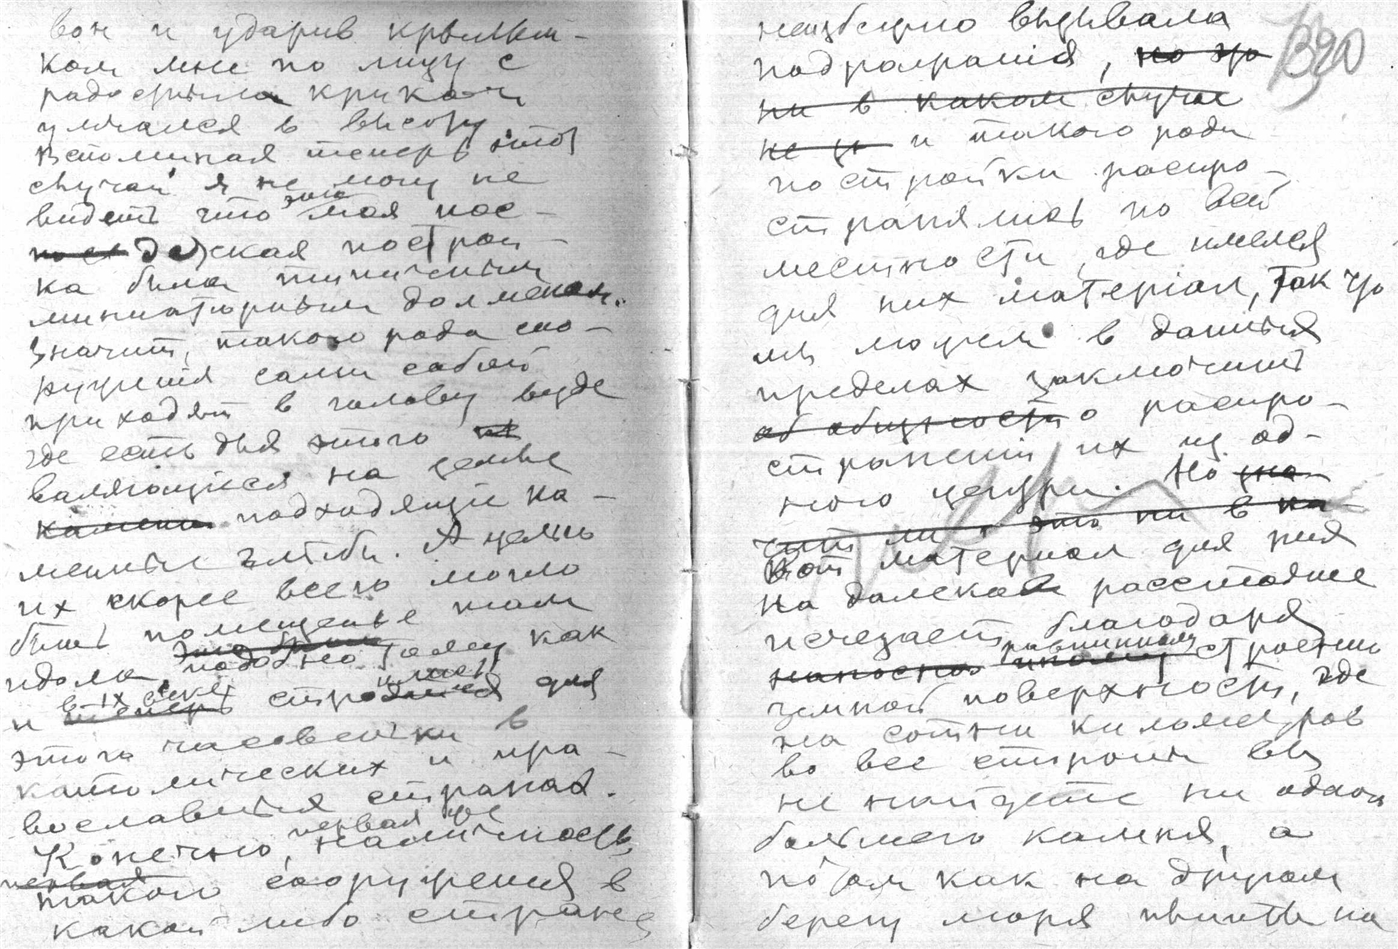 вон и ударив крылыш-
ком мне по лицу с
радостным криком
умчался в высоту.
Вспоминая теперь этот
случай я не могу не
видеть что эта моя
детская построй-
ка была типичным
миниатюрным долменом.
Значит, такого рода соо-
ружения сами собой
приходят в голову везде
где есть для этого
валяющиеся на земле
камени подходящие ка-
менные глыбы. А целью
их скорее всего могло
быть помещенье там
идола подобно тому как
и в IX веке теперь строят для
этого часовенки в
католических и пра-
вославных странах.
Конечно, первая же наличность
первая такого сооружения в
какой либо стране
неизбежно вызывала
подражания, но это
ни в каком случае
не и такого рода
постройки распро-
странялись по всей
местности, где имелся
для них матеріал, так что
мы можем в данных
пределах заключить
об общности о распро-
странении их из од-
ного центра. Но
ли это ни в ка-
Вот материал для них
на далеком расстояние
исчезает благодаря
наносному равнинному строению
земной поверхности, где
на сотни километров
во все стороны вы
не найдете ни одного
большего камня, а
потом как на другом
берегу моря
1320